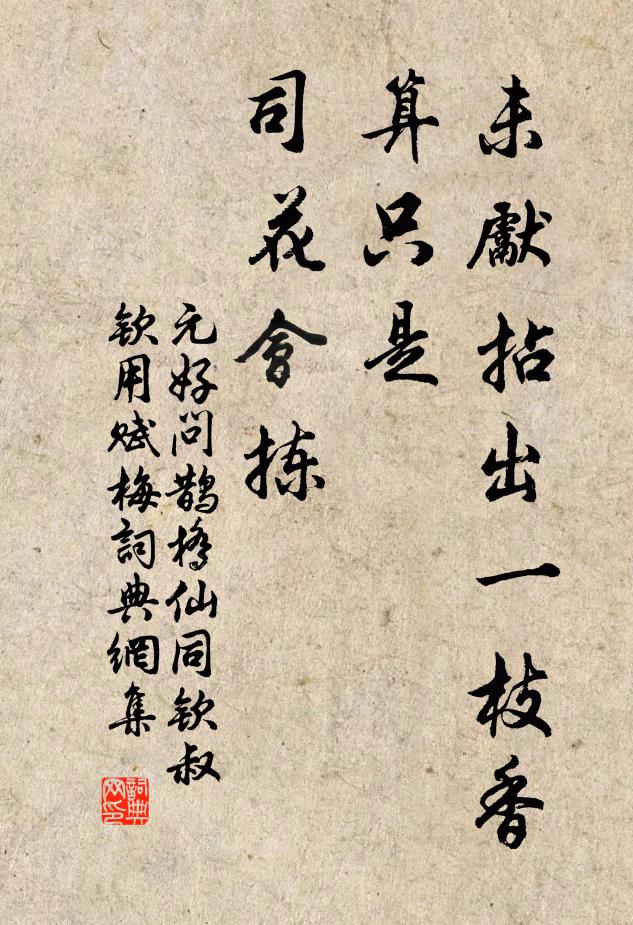 未獻拈出一枝香
算只是
司花會揀
元好問鵲橋仙同欽叔
欽用賦梅詞典網集
詞典网印